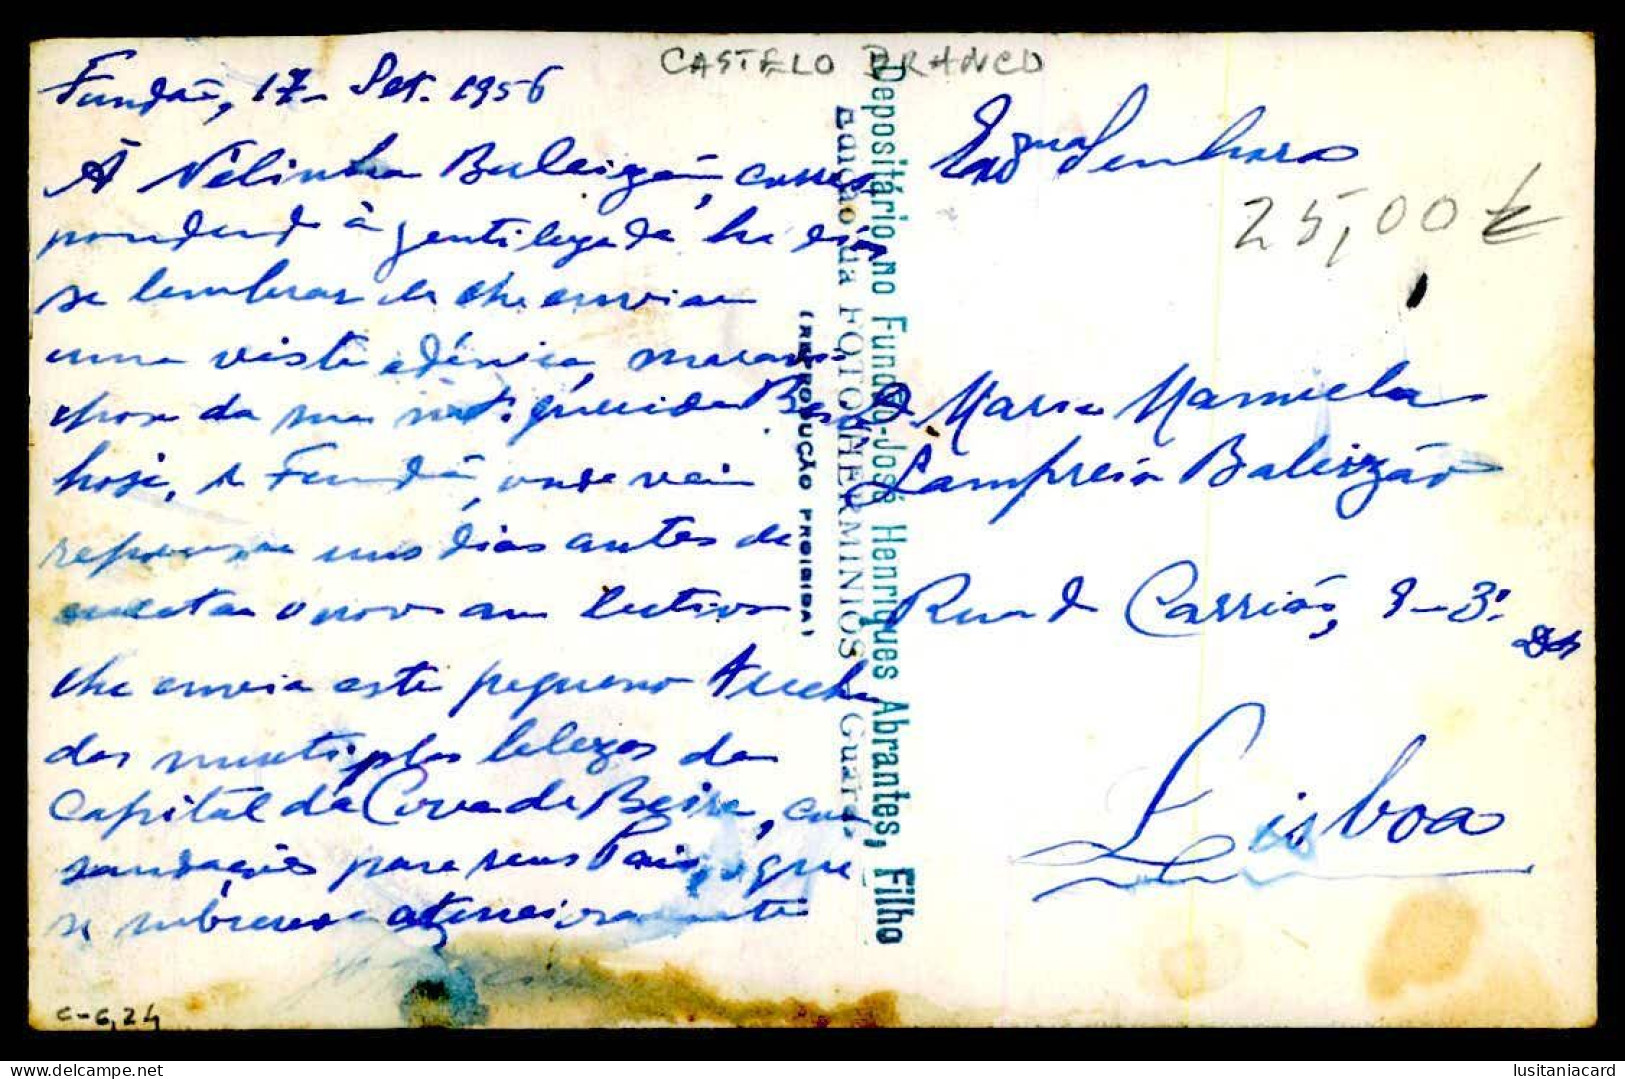 CASTELO BRANCO
Fundão, 17- Set. 1956
À Nelinha Baleizão, corres
pondendo à gentileza da
se lembrar de lhe enviar
uma vista edénica, maravi-
lhosa da sua
hoje, o Fundão, onde vei
repousar uns dias antes de
encetar o novo ano lectivo
lhe envia este pequeno
das multiplas belezas da
Capital da Cova da Beira, com
saudações para seus Pais, o que
se subscreve atenciosamente
c-6,24
(REPRODUÇÃO PROIBIDA)
Edição da FOTO HERMINIOS - Guarda
Depositário no Fundão-José Henriques Abrantes, Filho
Exma Senhora
25,00
D. Maria Manuela
Lampreia Baleizão
Rua de Carrião, 9-3º
Lisboa
delcampe.net
lusitaniacard